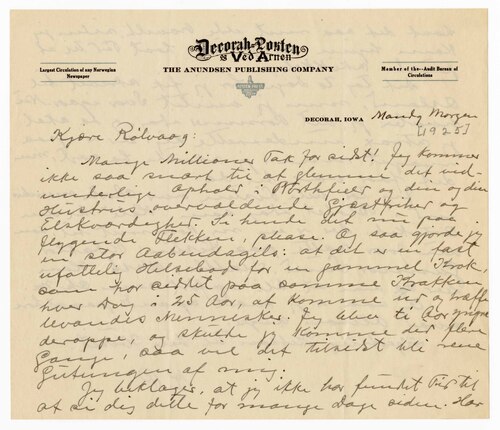 Decorah-Posten
og Ved Arnen
THE ANUNDSEN PUBLISHING COMPANY
Largest Circulation of any Norwegian
Newspaper
Member of the Audit Bureau of
Circulations
DECORAH, IOWA
Mandag Morgen
[1925]
Kjære Rölvaag:
Mange Millioner Tak for sidst! Jeg kommer
ikke saa snart til at glemme det vid-
underlige Ophold i Northfield og din og din
Hustrus overvældende Gjestfrihed og
Elskværdighed. Si hende det nu paa
flygende Flekken, please. Og saa gjorde jeg
en stor Aabenbaring: at det er en fast
ufattelig Helsebod for en gammel Krok,
som har siddet paa samme Krakken
hver Dag i 25 Aar, at komme ud og træffe
levandes Menneske. Jeg blev ti Aar yngre
deroppe, og skulde jeg komme der flere
Gange, saa vil det tilsidst bli rene
Gutungen af mig.
Jeg beklager, at jeg ikke har fundet Tid til
at si dig dette for mange Dage siden. Har